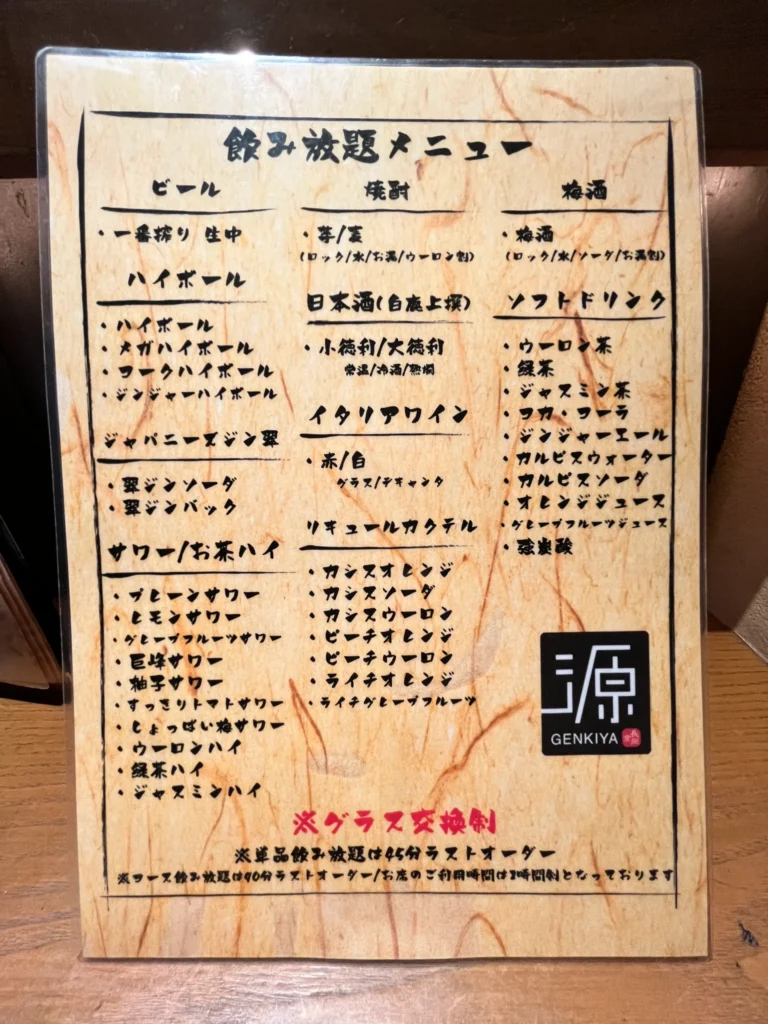 飲み放題メニュー
ビール
・一番搾り 生中
ハイボール
・ハイボール
・メガハイボール
・コークハイボール
・ジンジャーハイボール
ジャパニーズジン翠
・翠ジンソーダ
・翠ジンバック
サワー/お茶ハイ
・プレーンサワー
・レモンサワー
・グレープフルーツサワー
・巨峰サワー
・柚子サワー
・すっきりトマトサワー
・しょっぱい梅サワー
・ウーロンハイ
・緑茶ハイ
・ジャスミンハイ
焼酎
・芋/麦
(ロック/水/お湯/ウーロン割)
日本酒(白鹿上撰)
・小徳利/大徳利
常温/冷酒/熱燗
イタリアワイン
・赤/白
グラス/デキャンタ
リキュールカクテル
・カシスオレンジ
・カシスソーダ
・カシスウーロン
・ピーチオレンジ
・ピーチウーロン
・ライチオレンジ
・ライチグレープフルーツ
梅酒
・梅酒
(ロック/水/ソーダ/お湯割)
ソフトドリンク
・ウーロン茶
・緑茶
・ジャスミン茶
・コカ・コーラ
・ジンジャーエール
・カルピスウォーター
・カルピスソーダ
・オレンジジュース
・グレープフルーツジュース
・強炭酸
源
GENKIYA
※グラス交換制
※単品飲み放題は45分ラストオーダー
※コース飲み放題は90分ラストオーダー/お店のご利用時間は2時間制となっております